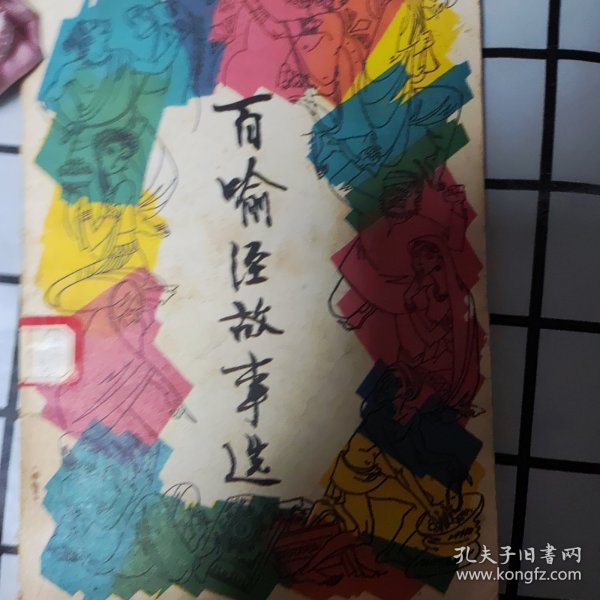 百喻经故事选
孔夫子旧書网
www.kongfz.com